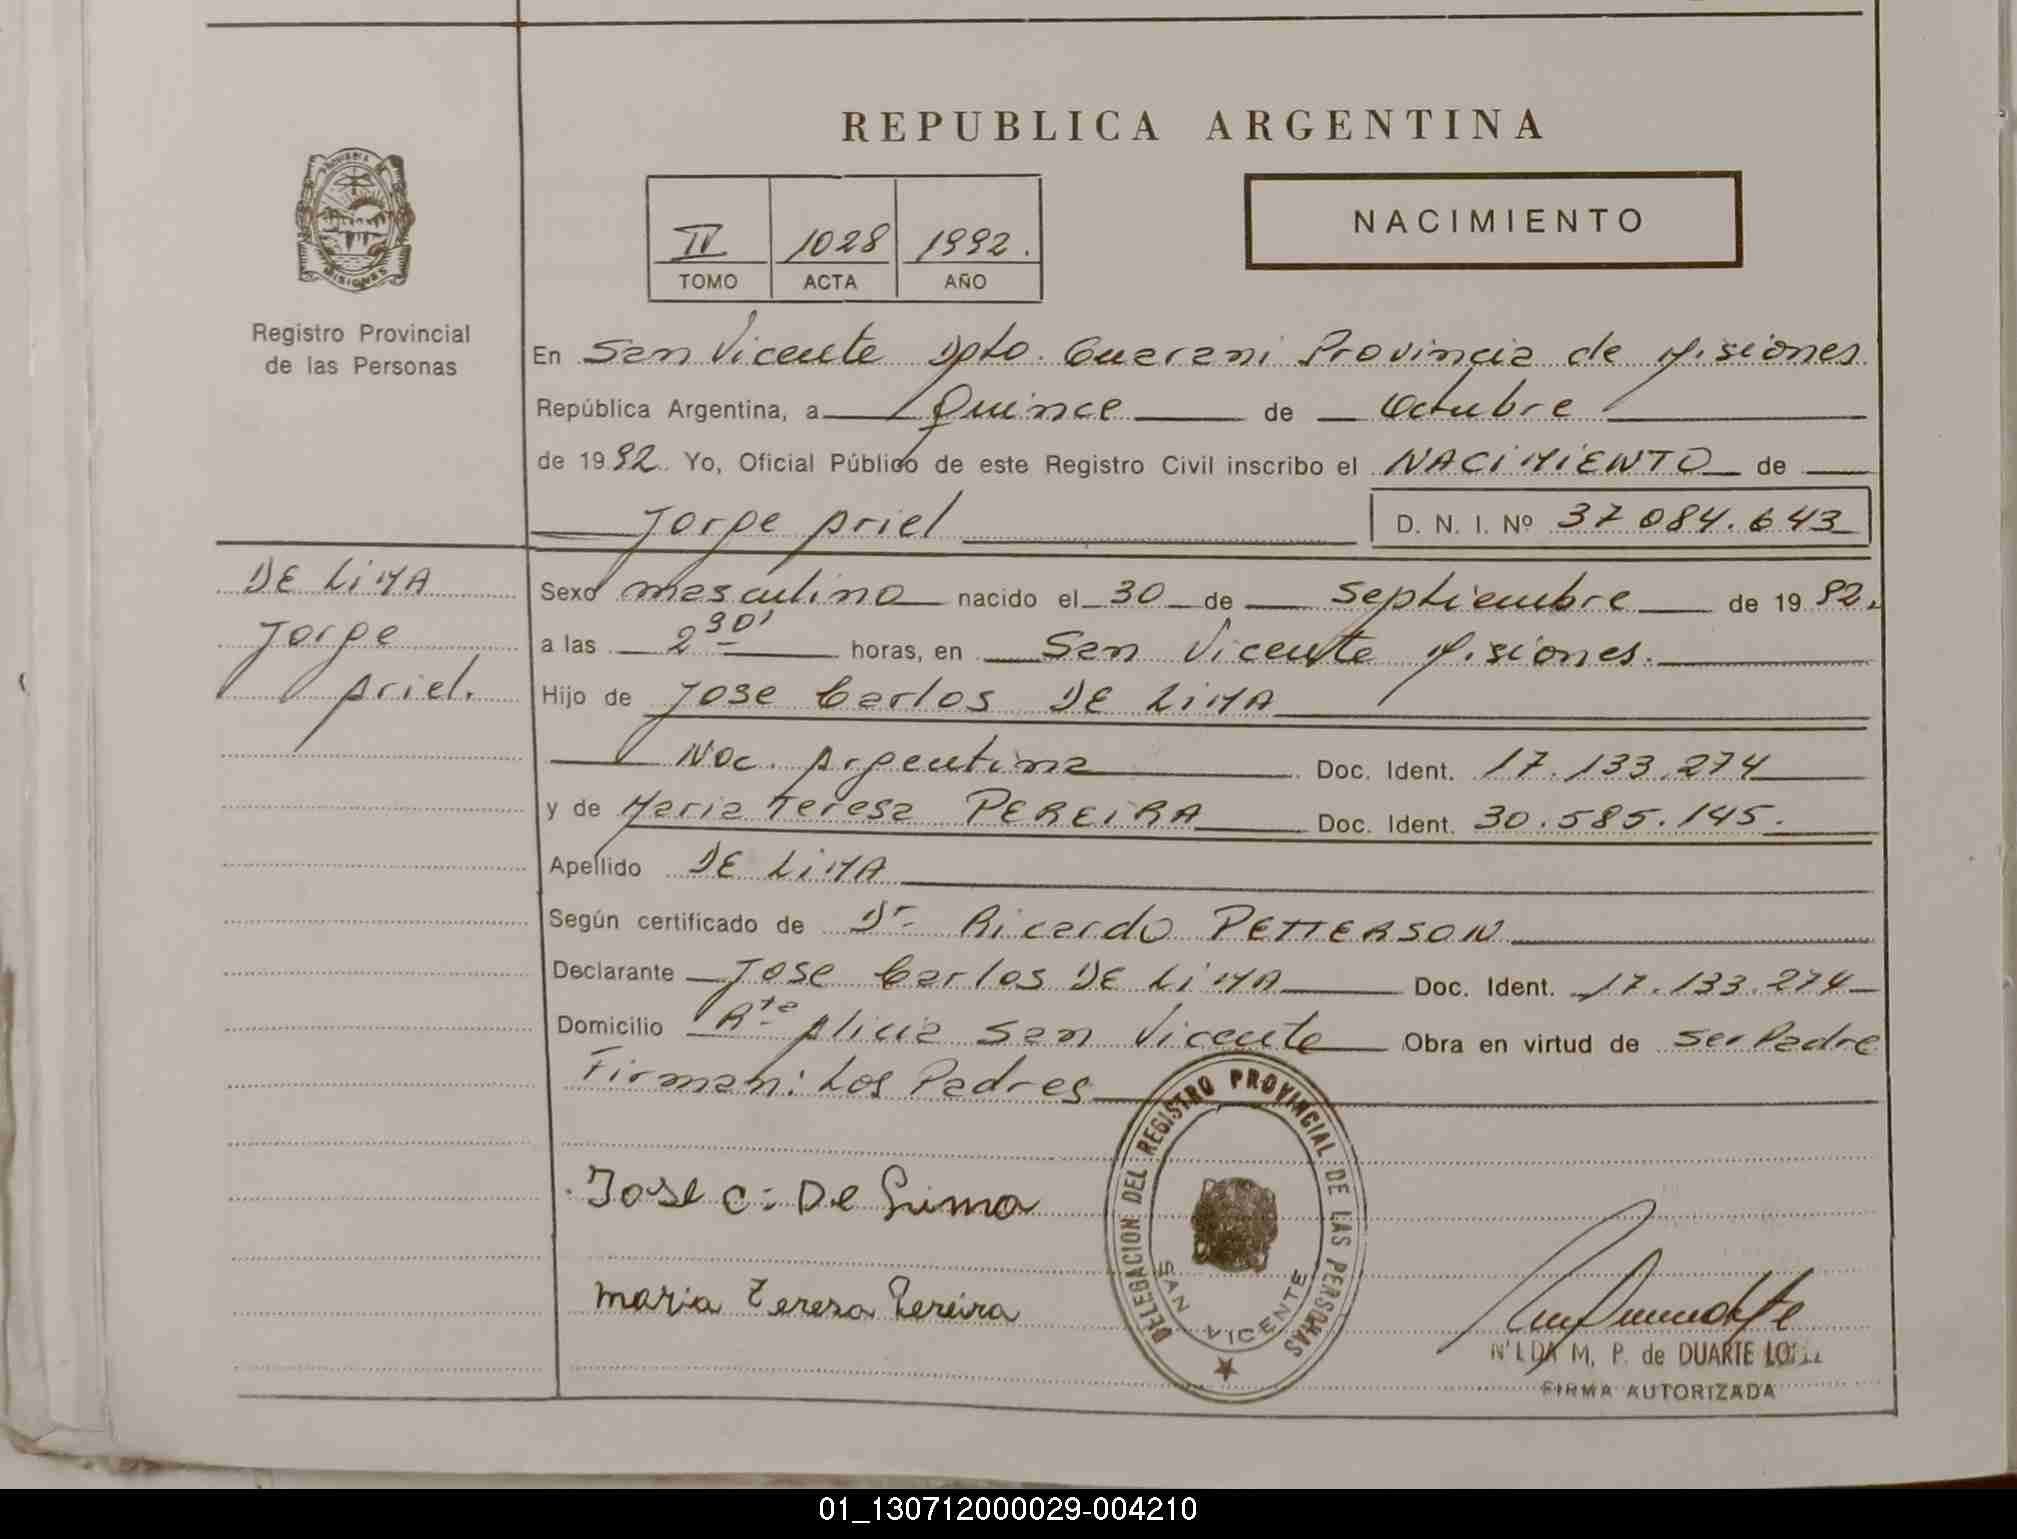 REPUBLICA ARGENTINA
NACIMIENTO
IV 1028 1992.
TOMO ACTA AÑO
PROVINCIA MISIONES
Registro Provincial
de las Personas
En San Vicente Dpto. Guarani Provincia de Misiones
República Argentina, a Quince de Octubre
de 1992. Yo, Oficial Público de este Registro Civil inscribo el NACIMIENTO de
Jorge Ariel D. N. I. Nº 37 084.643
DE LIMA
Jorge
Ariel.
Sexo masculino nacido el 30 de Septiembre de 1992.
a las 2 30' horas, en San Vicente Misiones.
Hijo de Jose Carlos DE LIMA
Nac. Argentina Doc. Ident. 17.133.274
y de Maria Teresa PEREIRA Doc. Ident. 30.585.145.
Apellido DE LIMA
Según certificado de Dr Ricardo PETTERSON
Declarante Jose Carlos DE LIMA Doc. Ident. 17.133.274
Domicilio Rta Alicia San Vicente Obra en virtud de Ser Padre
Firman: Los Padres
Jose C: De Lima
Maria Teresa Pereira
DELEGACION DEL REGISTRO PROVINCIAL DE LAS PERSONAS
SAN VICENTE
NILDA M. P. de DUARTE LOPEZ
FIRMA AUTORIZADA
01_130712000029-004210